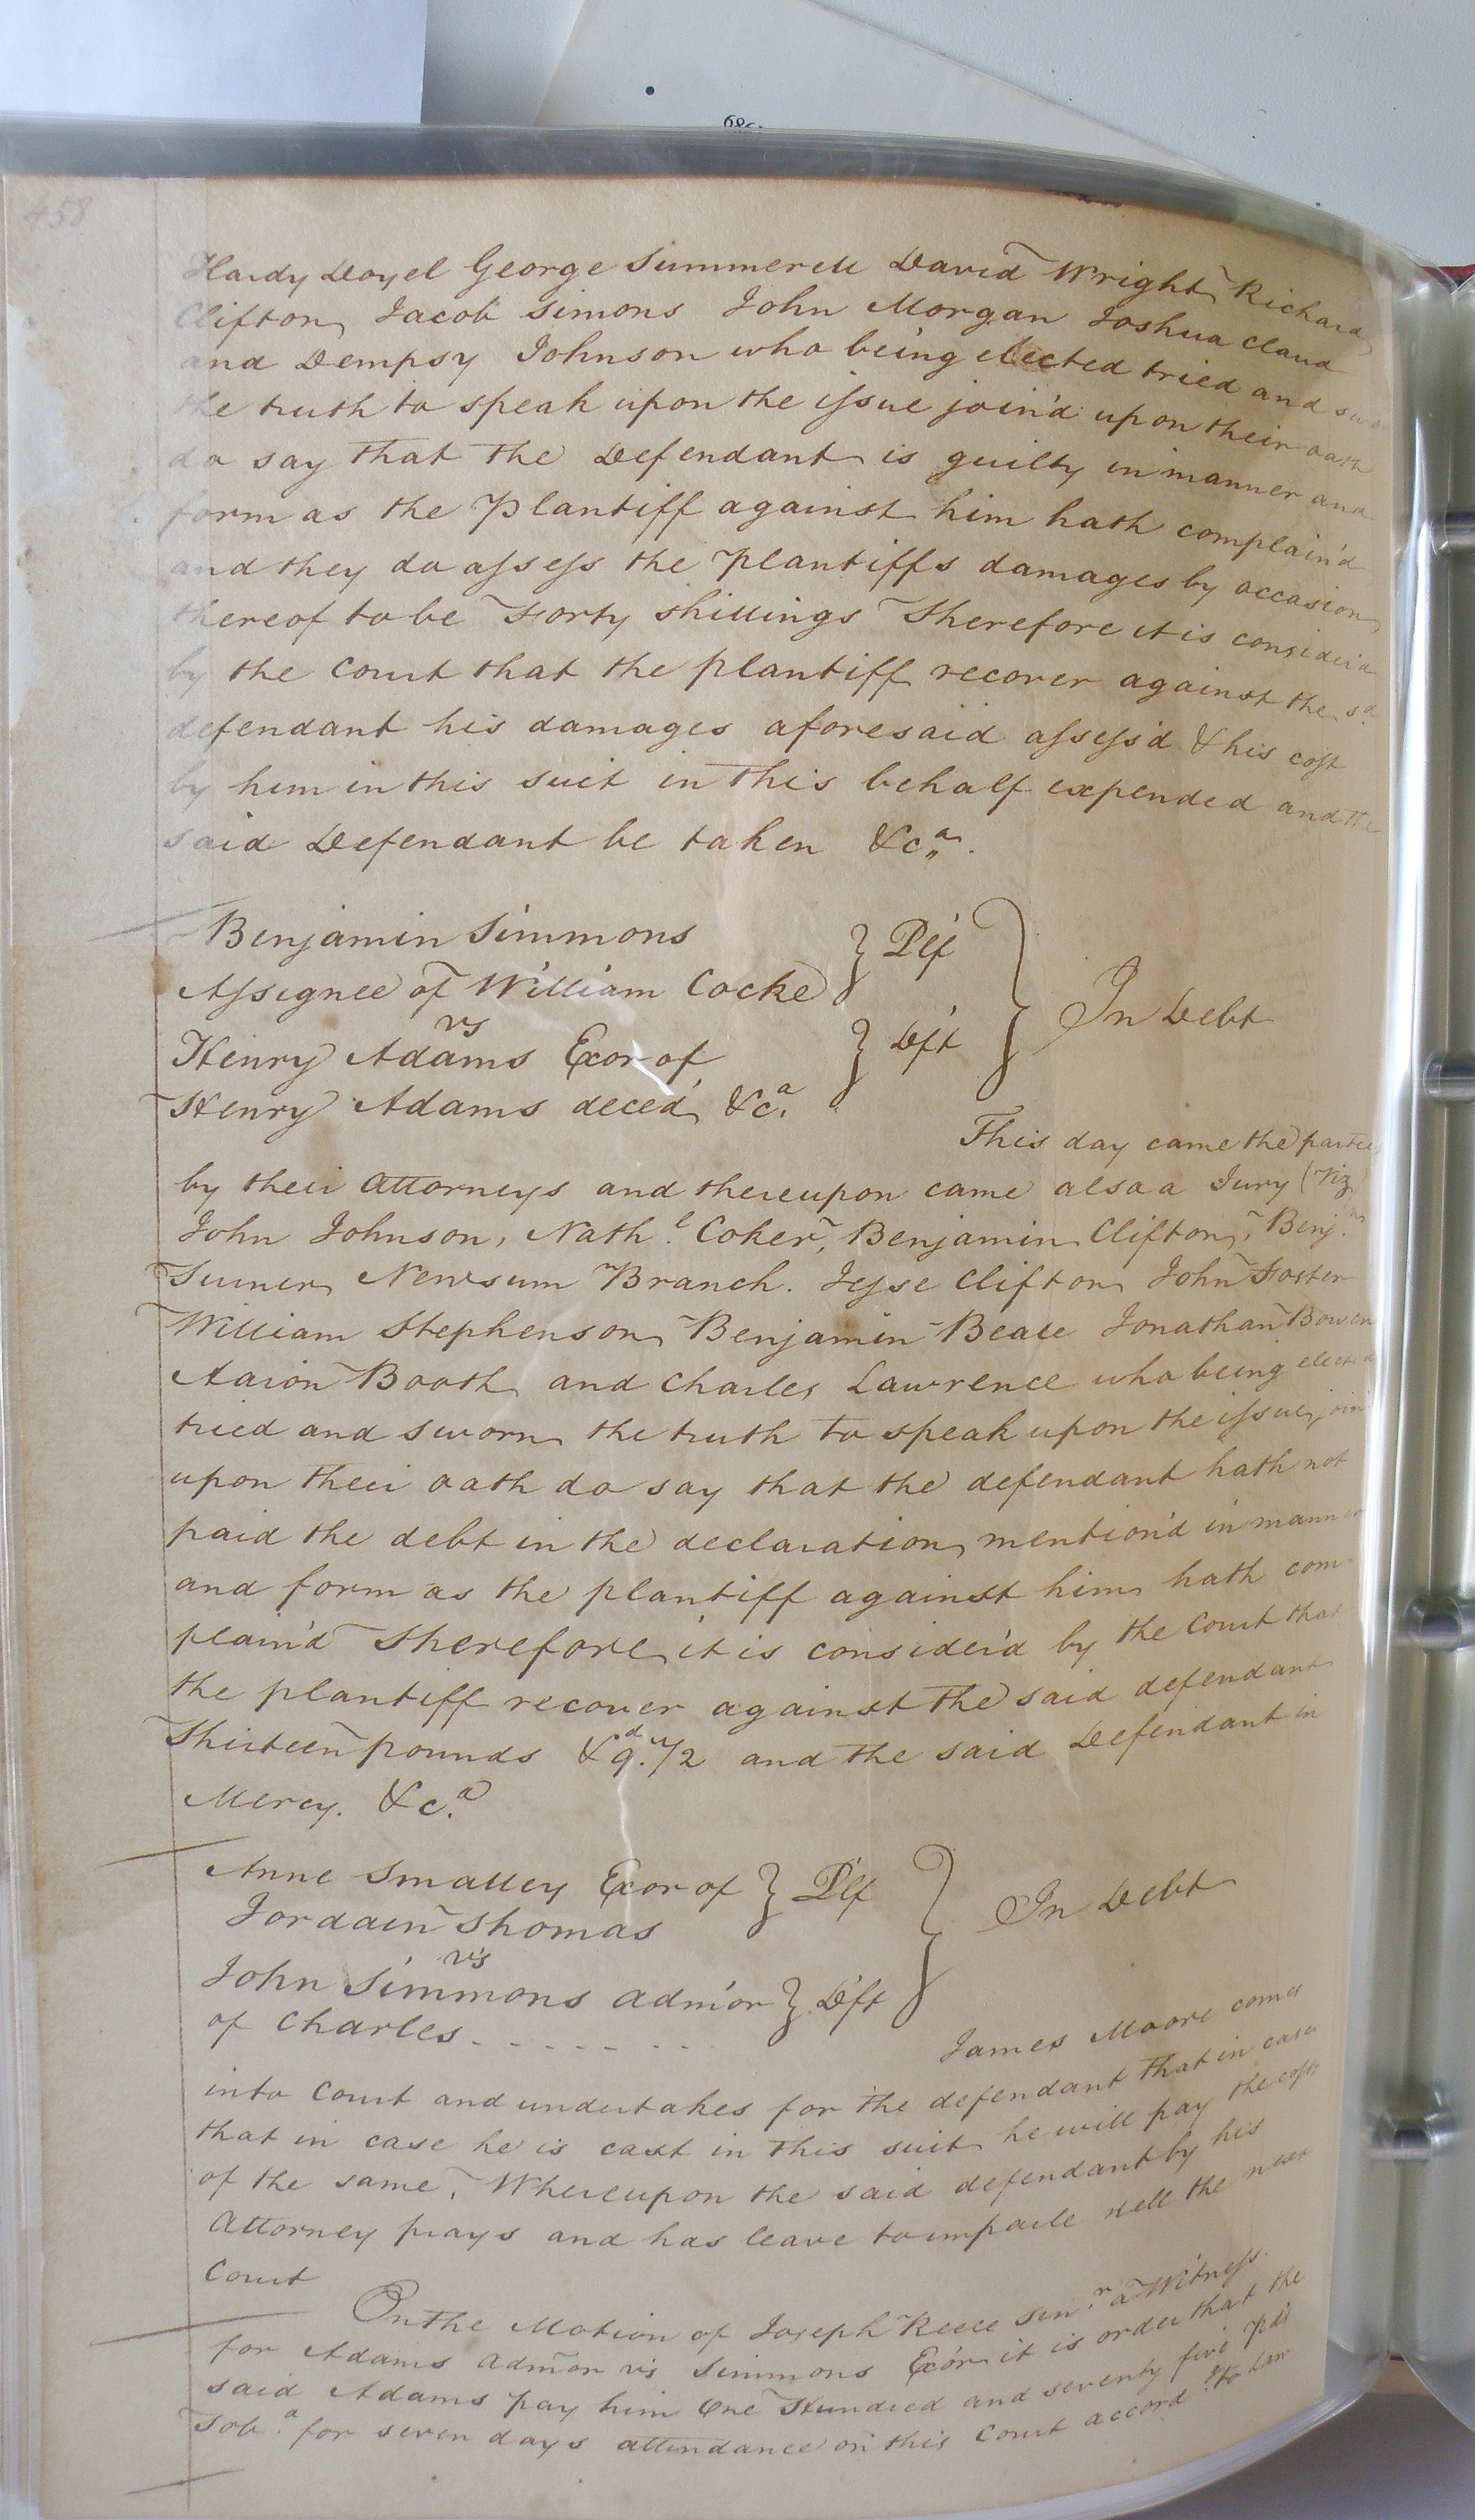 458
Hardy Doyel George Summerell David Wright Richard
Clifton, Jacob Simons John Morgan Joshua Claud
and Dempsy Johnson who being elected tried and
the truth to speak upon the issue join'd upon their oath
do say that the Defendant is guilty in manner and
form as the Plantiff against him hath complain'd
and they do assess the Plantiffs damages by occasion
thereof to be Forty shillings Therefore it is consider'd
by the Court that the plantiff recover against the sd.
defendant his damages aforesaid assess'd & his cost
by him in this suit in this behalf expended and the
said Defendant be taken &ca.
Benjamin Simmons } Plf
Assignee of William Cocke
vs } In Debt
Henry Adams Exor of } Dft
Henry Adams deced, &ca.
This day came the parties
by their Attorneys and thereupon came also a Jury (Viz)
John Johnson, Nathl. Coker, Benjamin Clifton, Benjn.
Turner Newsum Branch. Jesse Clifton John Foster
William Stephenson Benjamin Beale Jonathan Bowen
Aaron Booth and Charles Lawrence who being elected
tried and sworn the truth to speak upon the issue join'd
upon their oath do say that the defendant hath not
paid the debt in the declaration mention'd in manner
and form as the plantiff against him hath com-
plain'd Therefore it is consider'd by the Court that
the plantiff recover against the said defendant
Thirteen pounds & 9d. 1/2 and the said Defendant in
Mercy. &ca.
Anne Smalley Exor of } Plf
Jordain Thomas
vs } In Debt
John Simmons Adm'or } Dft
of Charles - - - - - - -
James Moore comes
into Court and undertakes for the defendant that in case
that in case he is cast in this suit he will pay the cost
of the same, Whereupon the said defendant by his
Attorney prays and has leave to imparle till the next
Court
On the Motion of Joseph Reece Senr. a Witness
for Adams Admor vs Simmons Exor it is order that the
said Adams pay him One Hundred and seventy five pds
Toba. for seven days attendance on this Court accordg. to Law